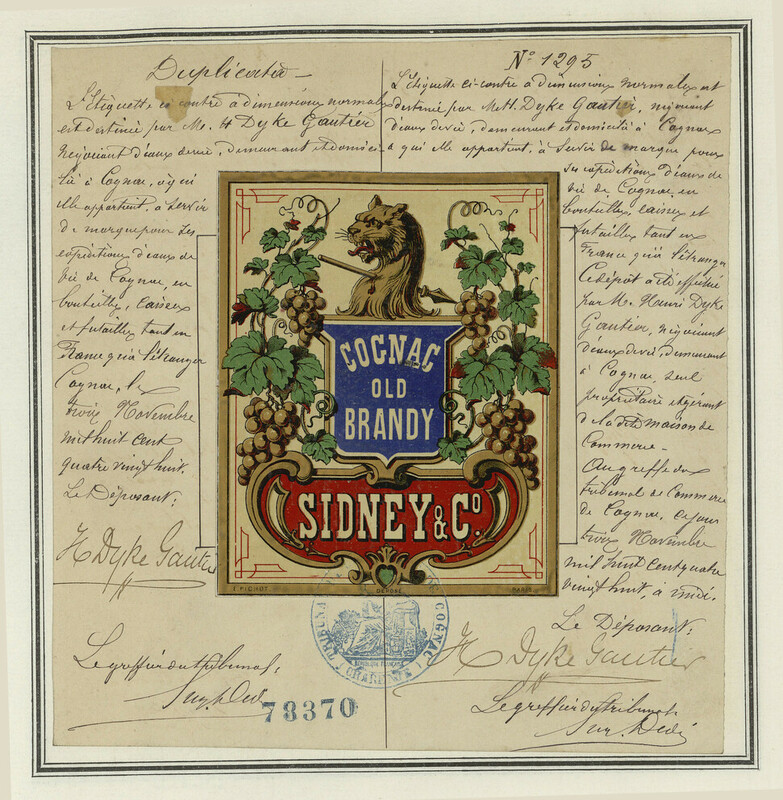 Duplicata
L'Etiquette ci contre a dimensions normales
est destinée par Mr. H Dyke Gautier
Négociant d'eaux de vie, demeurant et domici-
lié à Cognac, à qui
elle appartient, à servir
de marque pour ses
expéditions d'eaux de
vie de Cognac, en
bouteilles, caisses
et futailles tant en
France qu'à l'étranger
Cognac, le
trois Novembre
mil huit cent
quatre vingt huit.
Le Déposant:
H Dyke Gautier
Le greffier du tribunal:
78370
No 1295
L'Etiquette ci-contre a dimensions normales est
destinée par Mr H. Dyke Gautier, négociant
d'eaux de vie, demeurant et domicilié à Cognac
à qui elle appartient, à servir de marque pour
ses expéditions d'eaux de
vie de Cognac, en
bouteilles, caisses et
futailles tant en
France qu'à l'étranger
Ce dépôt a été effectué
par M. Henri Dyke
Gautier, négociant
d'eaux de vie, demeurant
à Cognac, seul
propriétaire et gérant
de la dite maison de
Commerce.
Au greffe du
tribunal de Commerce
de Cognac, ce jour
trois Novembre
mil huit cent quatre
vingt huit, à midi.
Le Déposant:
H Dyke Gautier
Le greffier du tribunal:
COGNAC
OLD
BRANDY
SIDNEY & Co
F. PICHOT
DÉPOSÉ
PARIS
COGNAC
(CHARENTE)